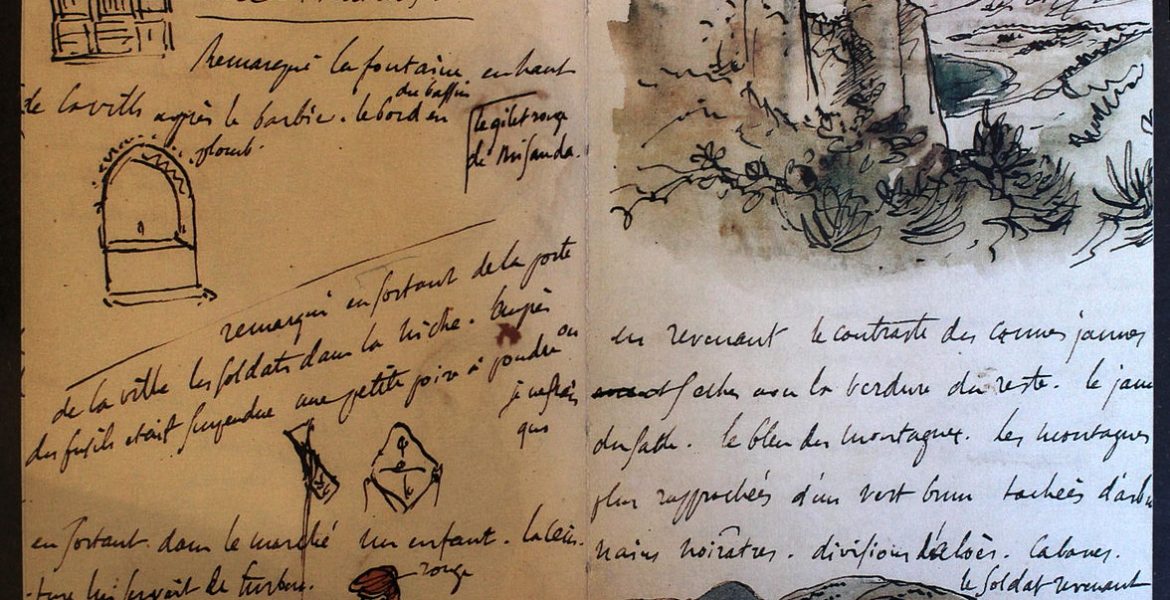 Remarqué la fontaine en haut
du bassin
de la ville après le barbier. le bord en
plombé.
le gilet rouge
de
remarqué en sortant de la porte
de la ville les soldats dans la niche. Auprès
des fusils était suspendue une petite poire à poudre ou
je ne sais
quoi
en sortant. dans le marché un enfant. la cein-
ture lui servait de turban.
rouge
en revenant le contraste des cannes jaunes
seches avec la verdure du reste. le jaune
du sable. le bleu des montagnes. les montagnes
plus rapprochées d'un vert brun tachées d'arbres
nains noirâtres. divisions d'aloès. Cabanes.
le soldat revenant